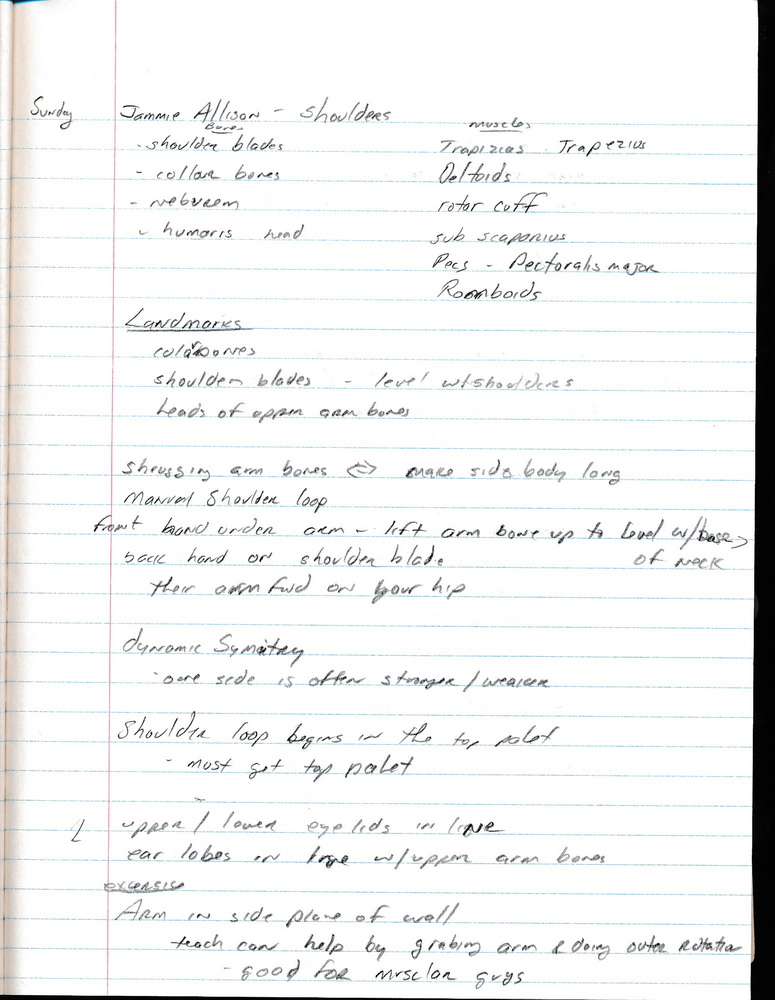 Sunday Jammie Allison - Shoulders
Bones muscles
- shoulder blades Trapizias Trapezius
- collar bones Deltoids
- neburem rotor cuff
- humaris head sub scaparius
Pecs - Pectoralis major
Roomboids
Landmarks
colarbones
shoulder blades - level w/ shoulders
heads of upper arm bones
shrugging arm bones <=> make side body long
Manual Shoulder loop
front hand under arm - lift arm bone up to level w/ base >
back hand on shoulder blade of neck
their arm fwd on your hip
dynamic Symitry
- one side is often stronger / weaker
Shoulder loop begins in the top palet
- must get top palet
upper / lower eye lids in line
ear lobes in line w/ upper arm bones
excersise
Arm in side plane of wall
teach can help by grabing arm & doing outer rotation
- good for musclar guys